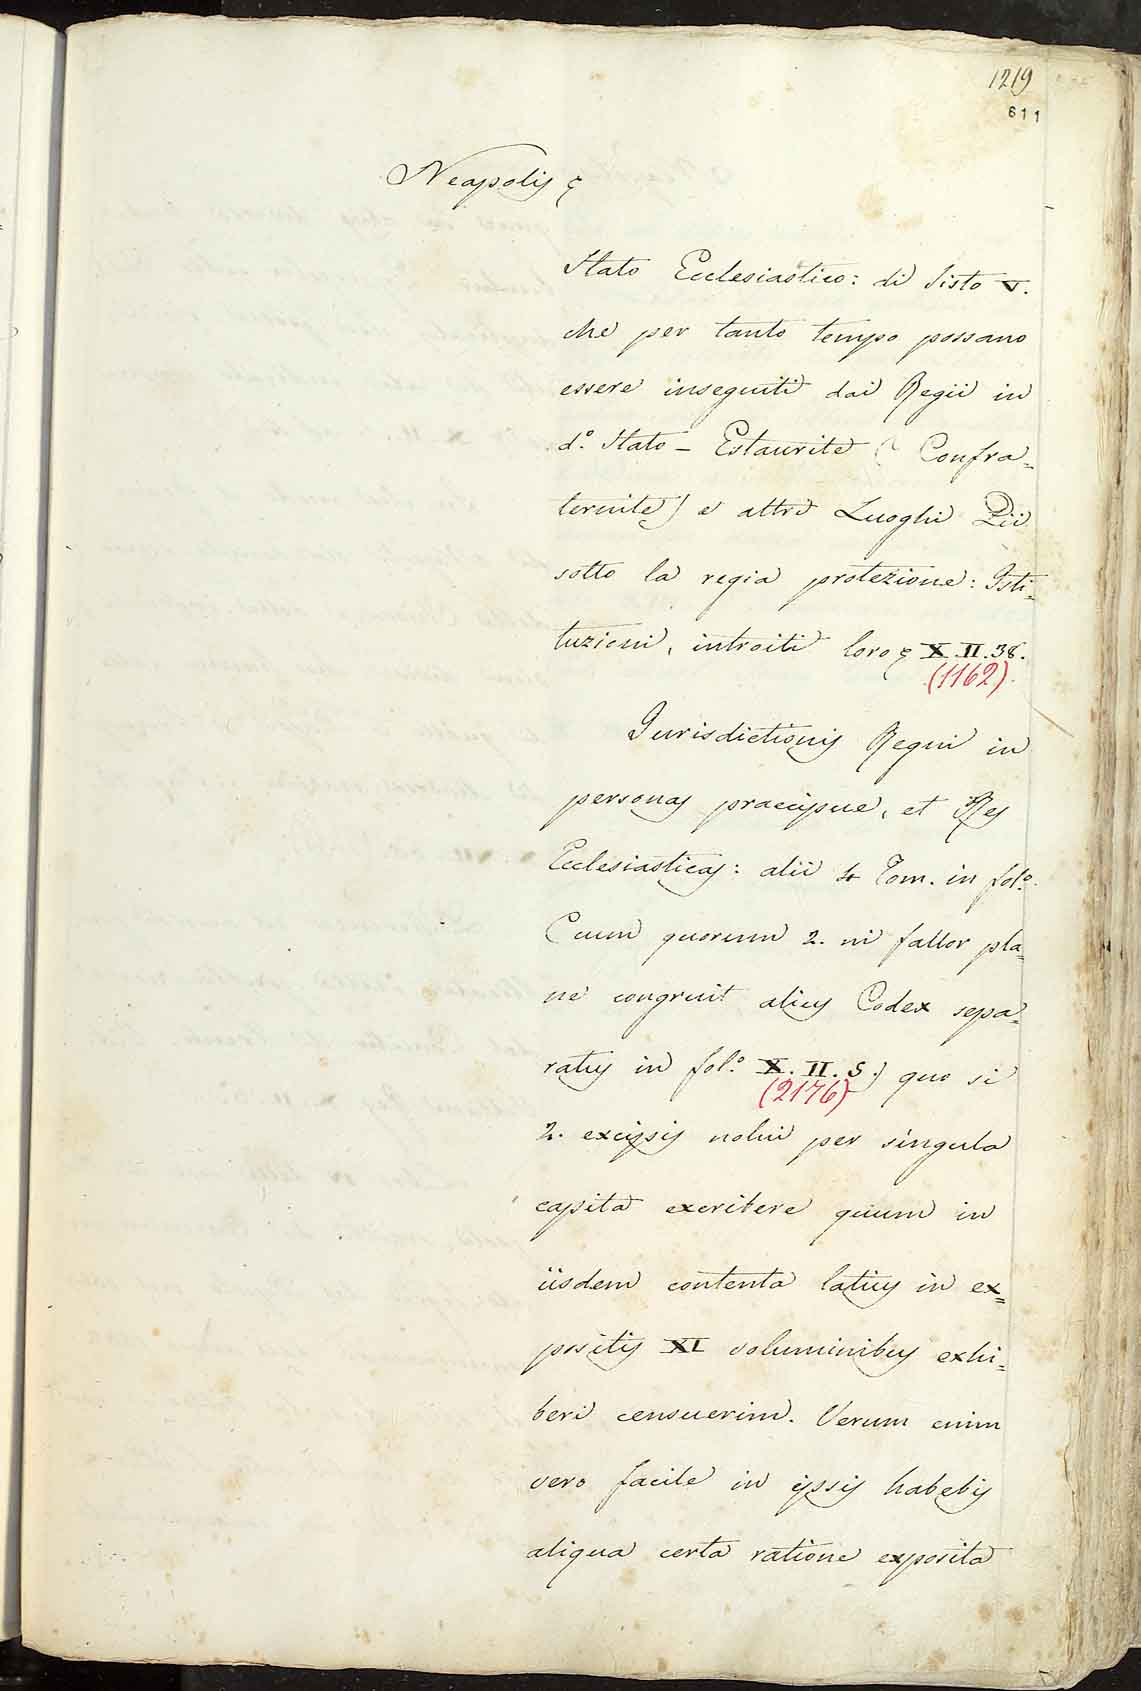 1219
611
Neapolis &
Stato Ecclesiastico: di Sisto V.
che per tanto tempo possano
essere inseguiti dai Regii in
d.º Stato - Estaurite ( Confra=
ternite) e altri Luoghi Pii
sotto la regia protezione: Isti=
tuzioni, introiti loro & X.II.38.
(1162).
Jurisdictionis Regni in
personas praecipue, et Res
Ecclesiasticas: alii 4 Tom. in fol.º
Cum quorum 2. ni fallor pla=
ne congruit alius Codex sepa=
ratus in fol.º X. II. 5.) quo si
(2176)
2. excipsis nolui per singula
capita excribere quum in
iisdem contenta latius in ex=
positis XI voluminibus exhi=
beri censuerim. Verum enim
vero facile in ipsis habebis
aliqua certa ratione exposita